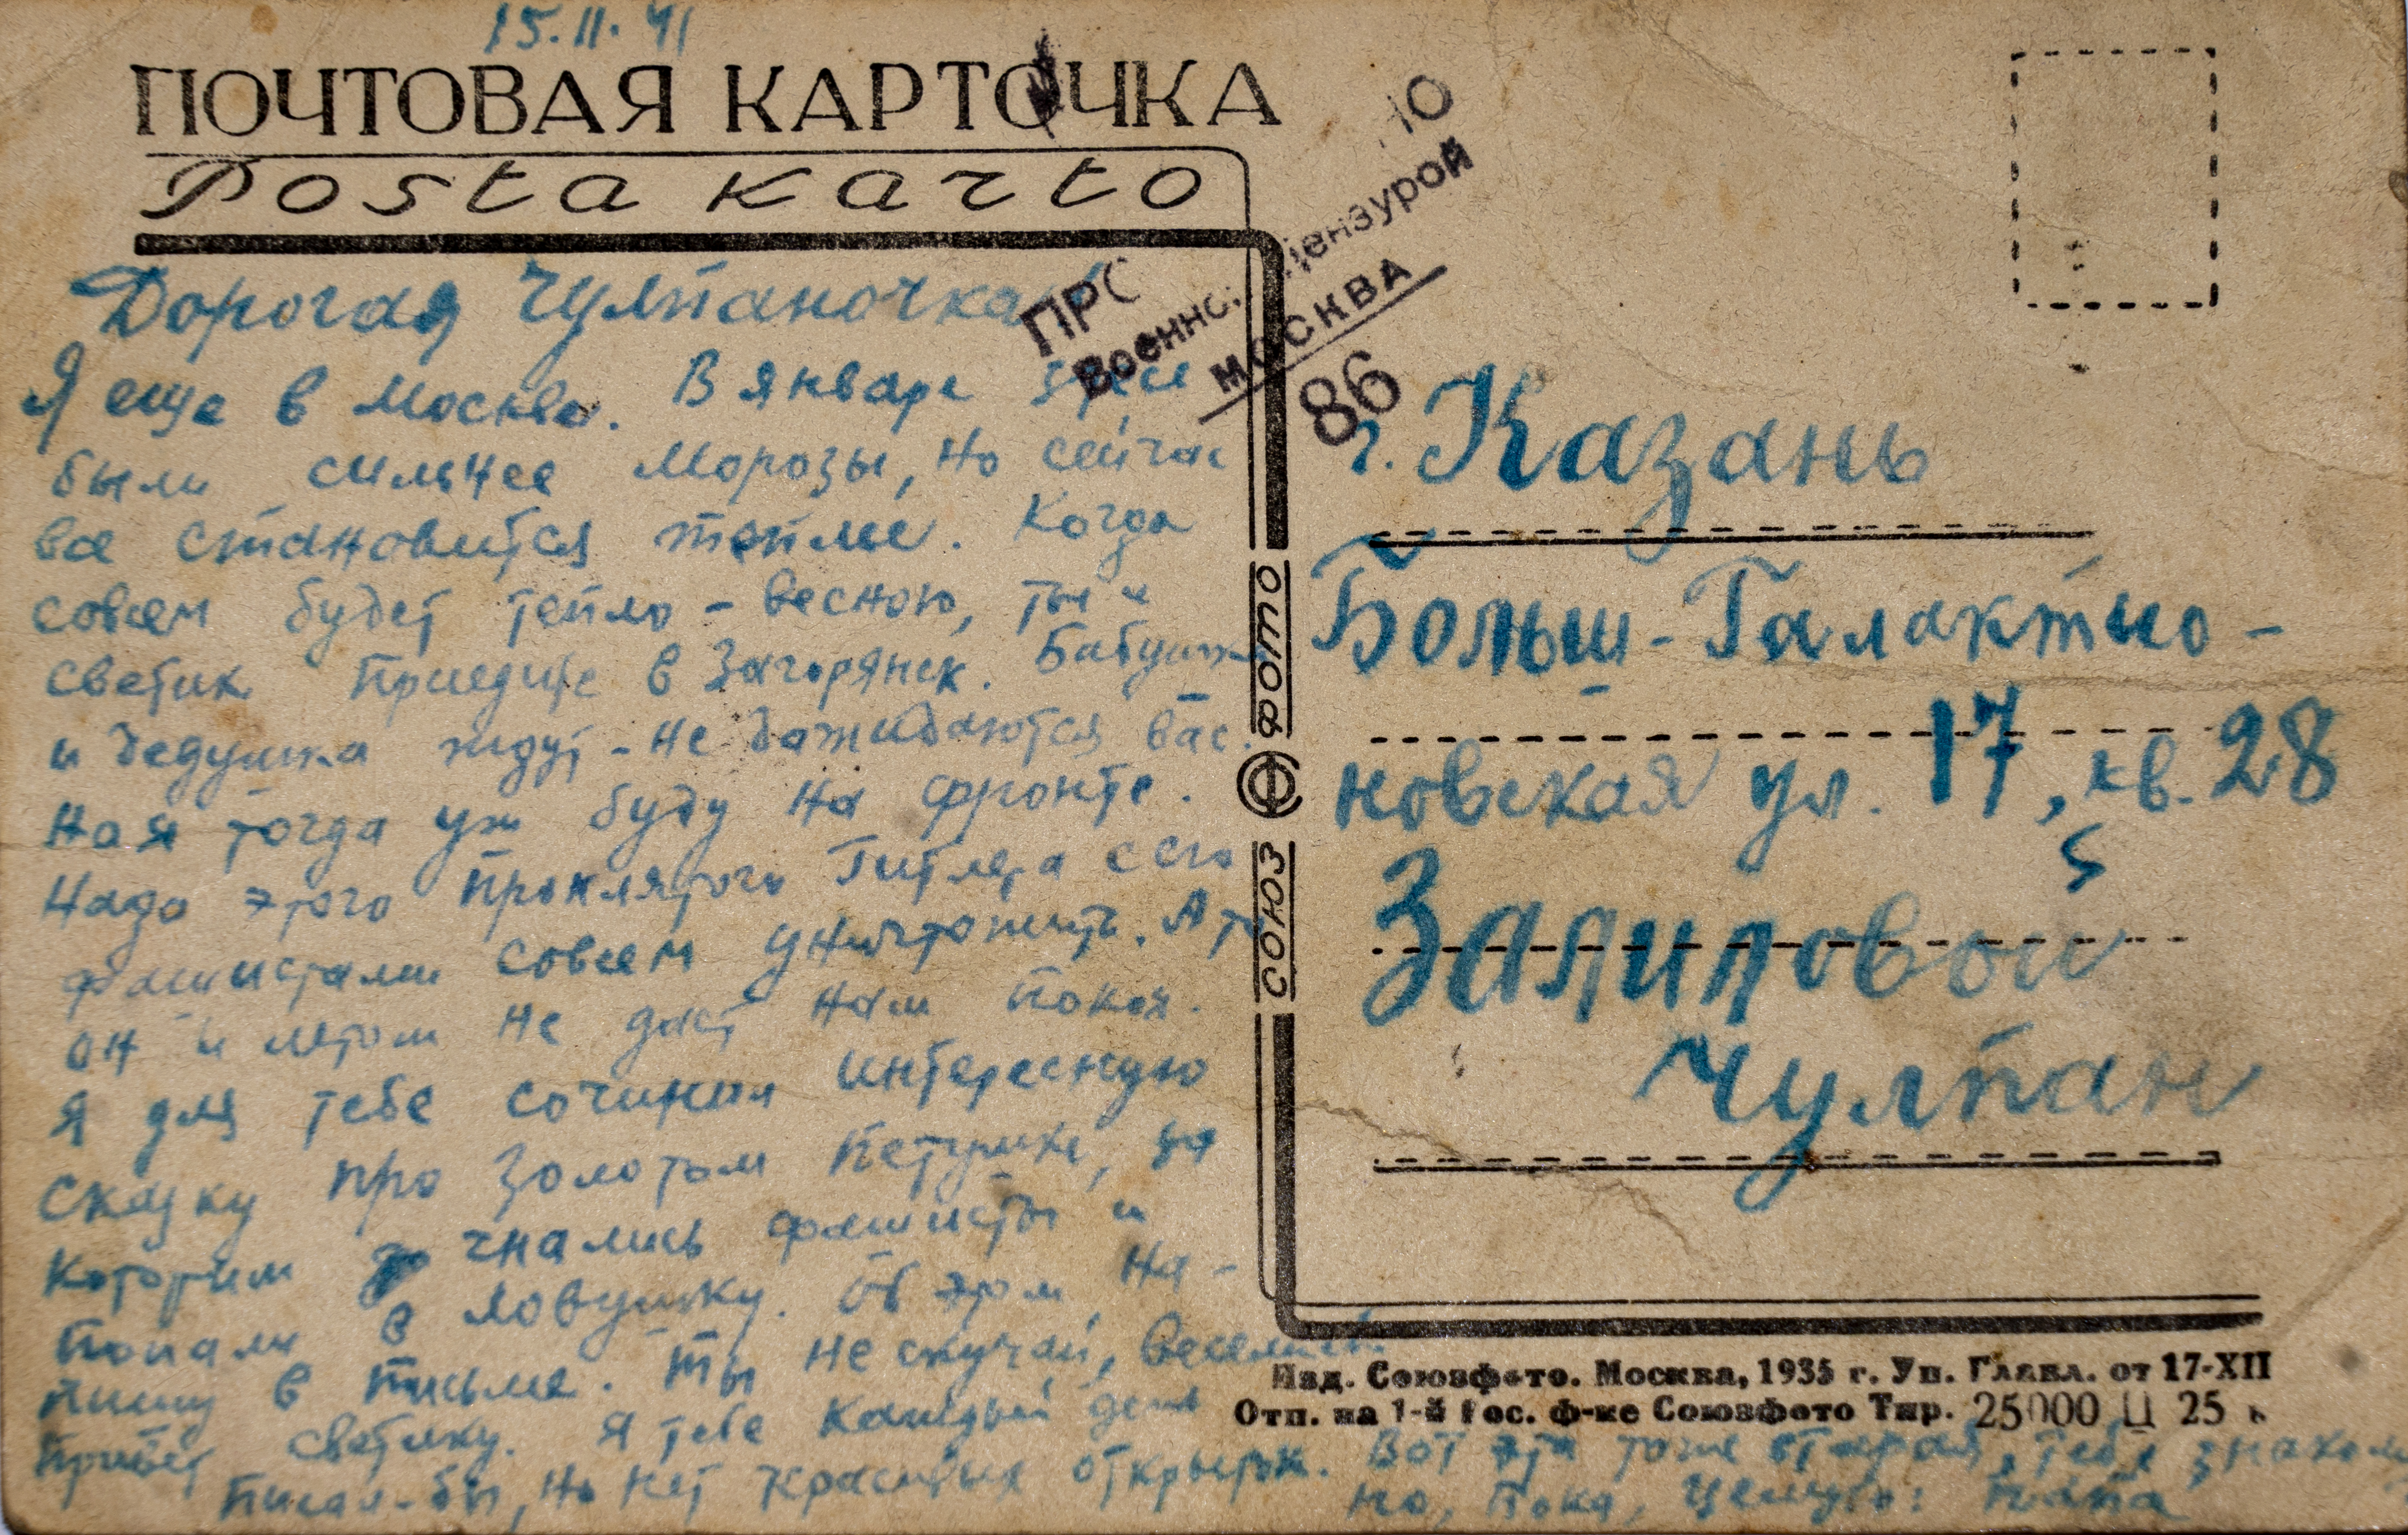 15.II.41
ПОЧТОВАЯ КАРТОЧКА
Posta karto
Дорогая Чулпаночка!
Я еще в Москве. В январе здесь
были сильнее морозы, но сейчас
все становится теплее. Когда
совсем будет тепло - весною, ты и
светик приедите в Загорянск. Бабушка
и дедушка ждут - не дожидаются вас.
Но я тогда уж буду на фронте.
Надо этого проклятого Гитлера с его
фашистами совсем уничтожить. А то
он и летом не даст нам покоя.
Я для тебе сочинил интересную
сказку про золотом петушке, за
которым гнались фашисты и
попали в ловушку. Об этом на-
пишу в письме. Ты не скучай, веселись.
Привет светику. Я тебе каждый день
писал-бы, но нет красивых открыток. Вот эта тоже старая, тебе знакома
Но, пока, целую: папа
ПРО
10
Военно. Цензурой
МОСКВА
86
г. Казань
Больш-Галактио-
новская ул. 17, кв. 28
5
Залиловой
Чулпан
СОЮЗ ФОТО
Изд. Союзфото. Москва, 1935 г. Уп. Главл. от 17-XII
Отп. на 1-й Гос. ф-ке Союзфото Тир. 25000 Ц 25 к